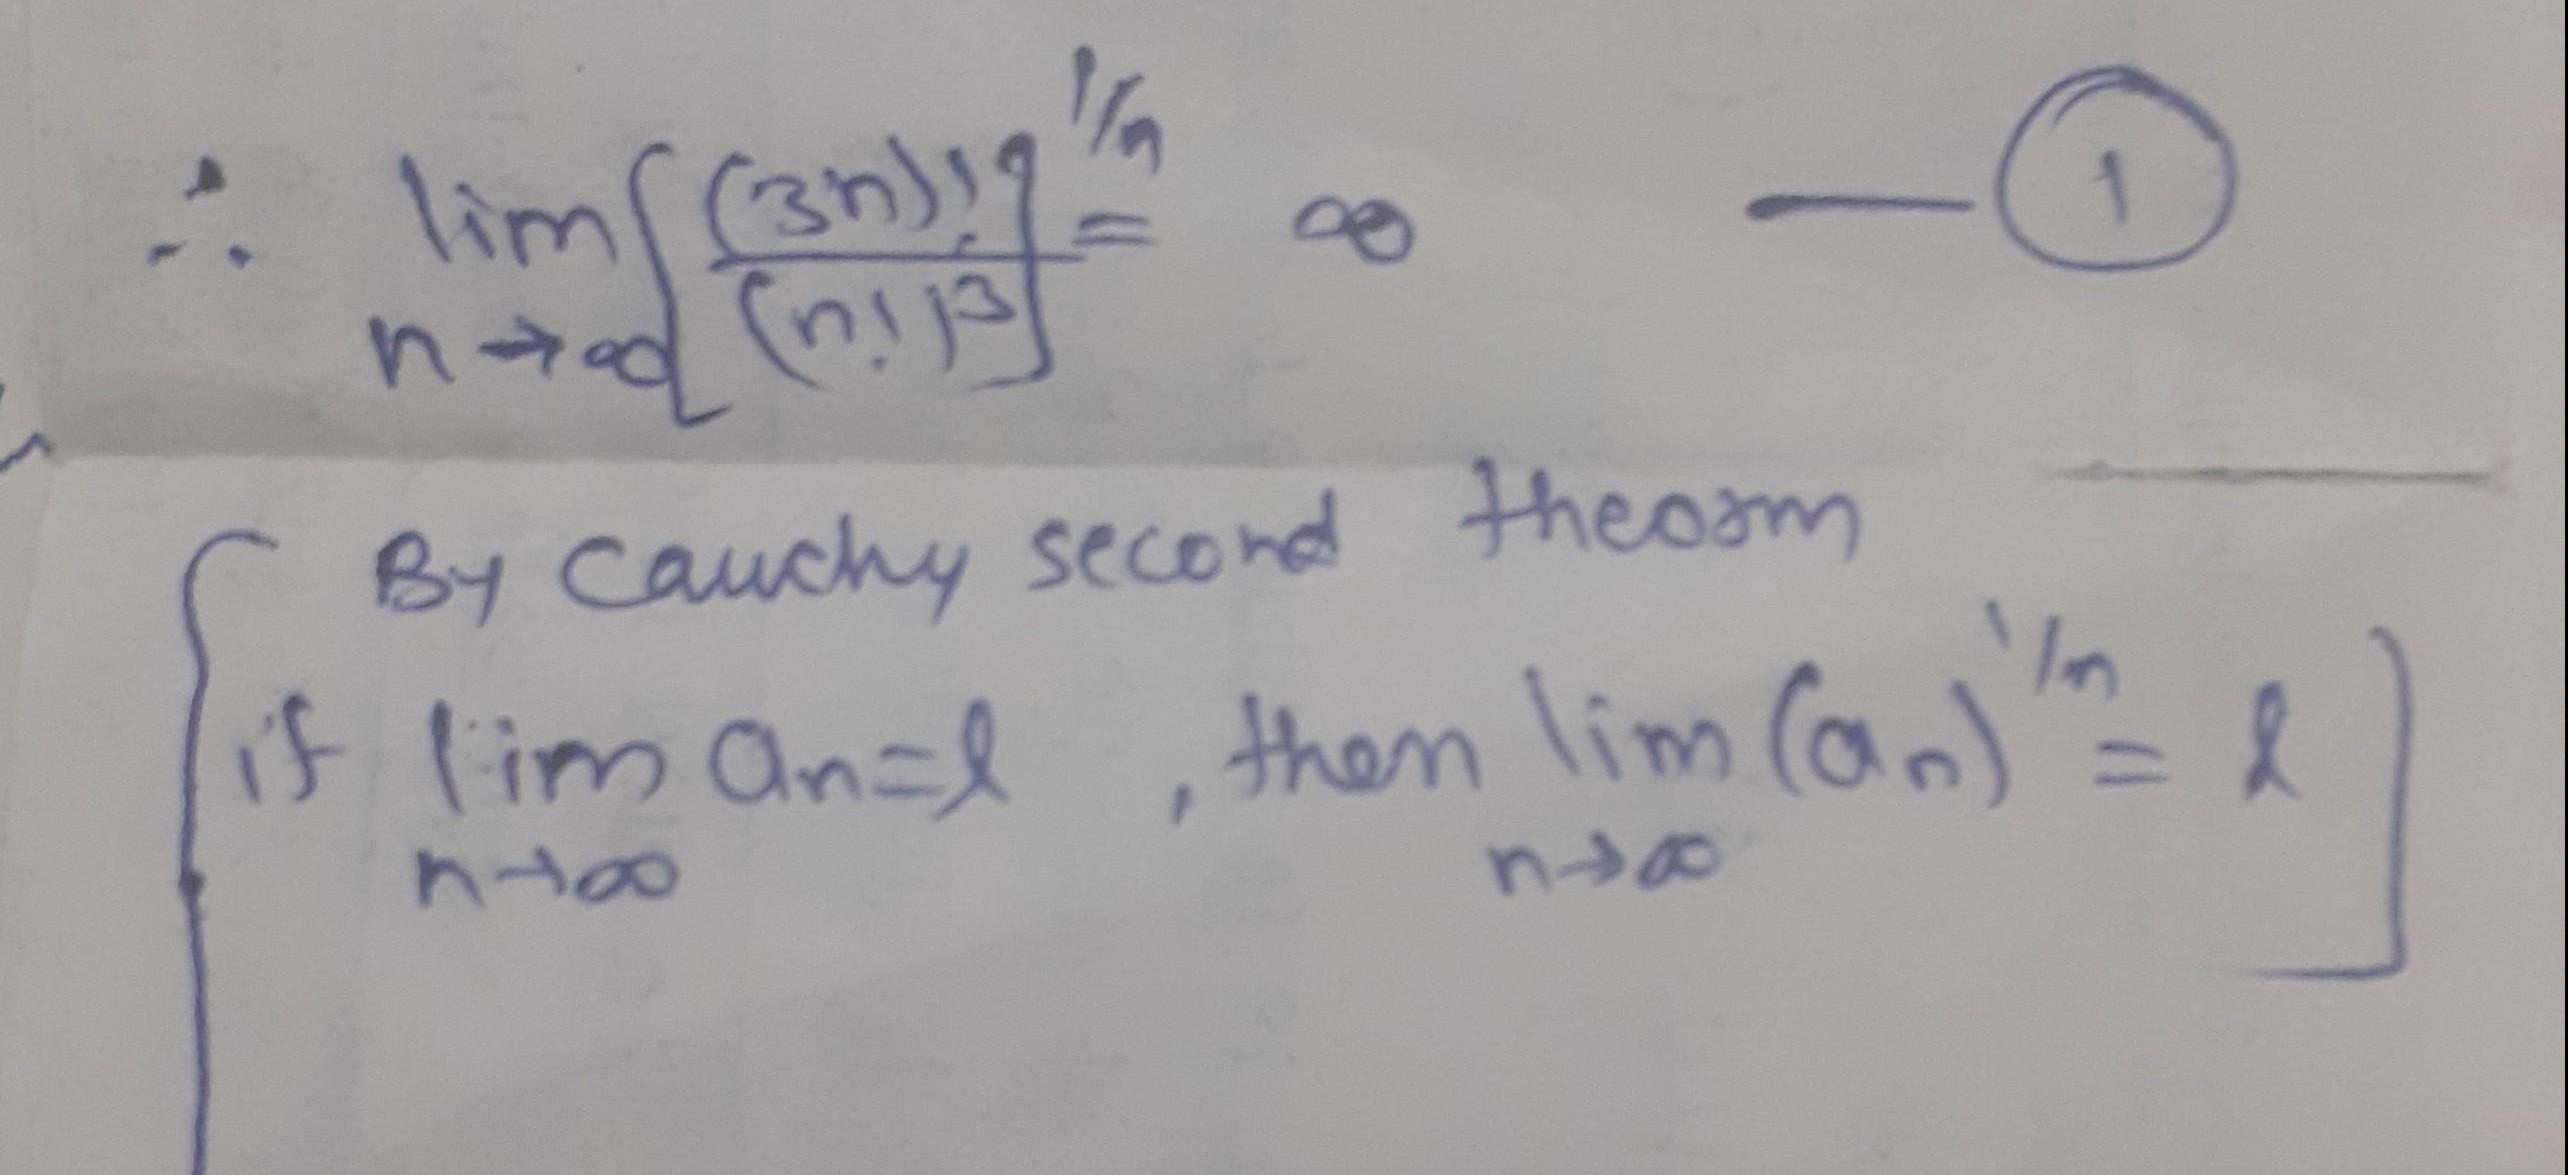 ∴ lim n→∞ {(3n)!/(n!)3}^1/n = ∞ — 1
By Cauchy second theorm
if lim n→∞ an=l , then lim n→∞ (an)^1/n = l